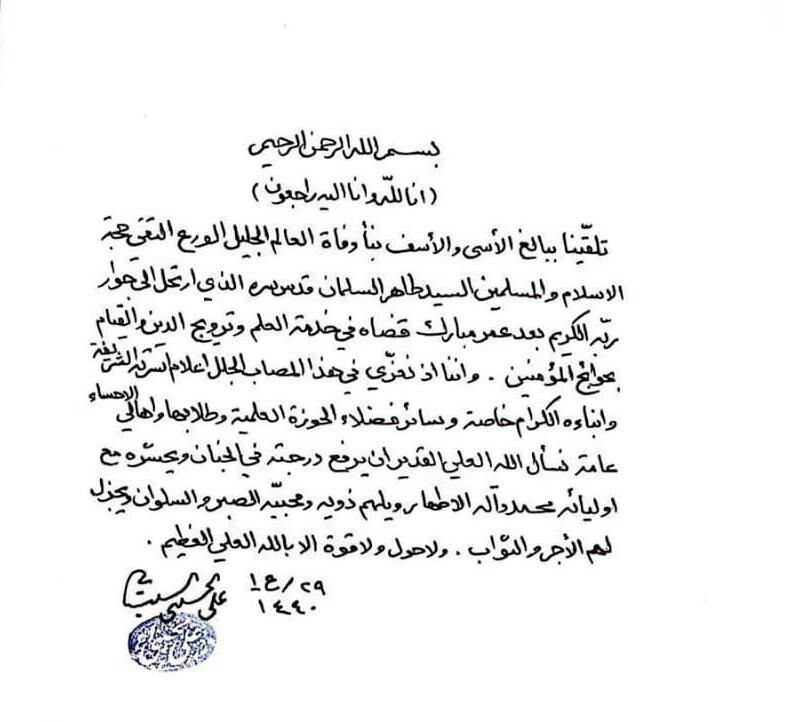 بسم الله الرحمن الرحيم
(انا لله وانا اليه راجعون)
تلقّينا ببالغ الأسى والأسف نبأ وفاة العالم الجليل الورع التقي حجة
الاسلام والمسلمين السيد طاهر السلمان قدس سره الذي ارتحل الى جوار
ربّه الكريم بعد عمر مبارك قضاه في خدمة العلم وترويج الدين والقيام
بحوائج المؤمنين . واننا اذ نعزّي في هذا المصاب الجلل اعلام اسرته الشريفة
وابناءه الكرام خاصة وسائر فضلاء الحوزة العلمية وطلابها واهالي الاحساء
عامة نسأل الله العلي القدير ان يرفع درجته في الجنان ويحشره مع
اوليائه محمد وآله الاطهار ويلهم ذويه ومحبيّه الصبر والسلوان ويجزل
لهم الأجر والثواب . ولا حول ولا قوة الا بالله العلي العظيم .
٢٩/ع١
١٤٤٠
علي الحسيني السيستاني